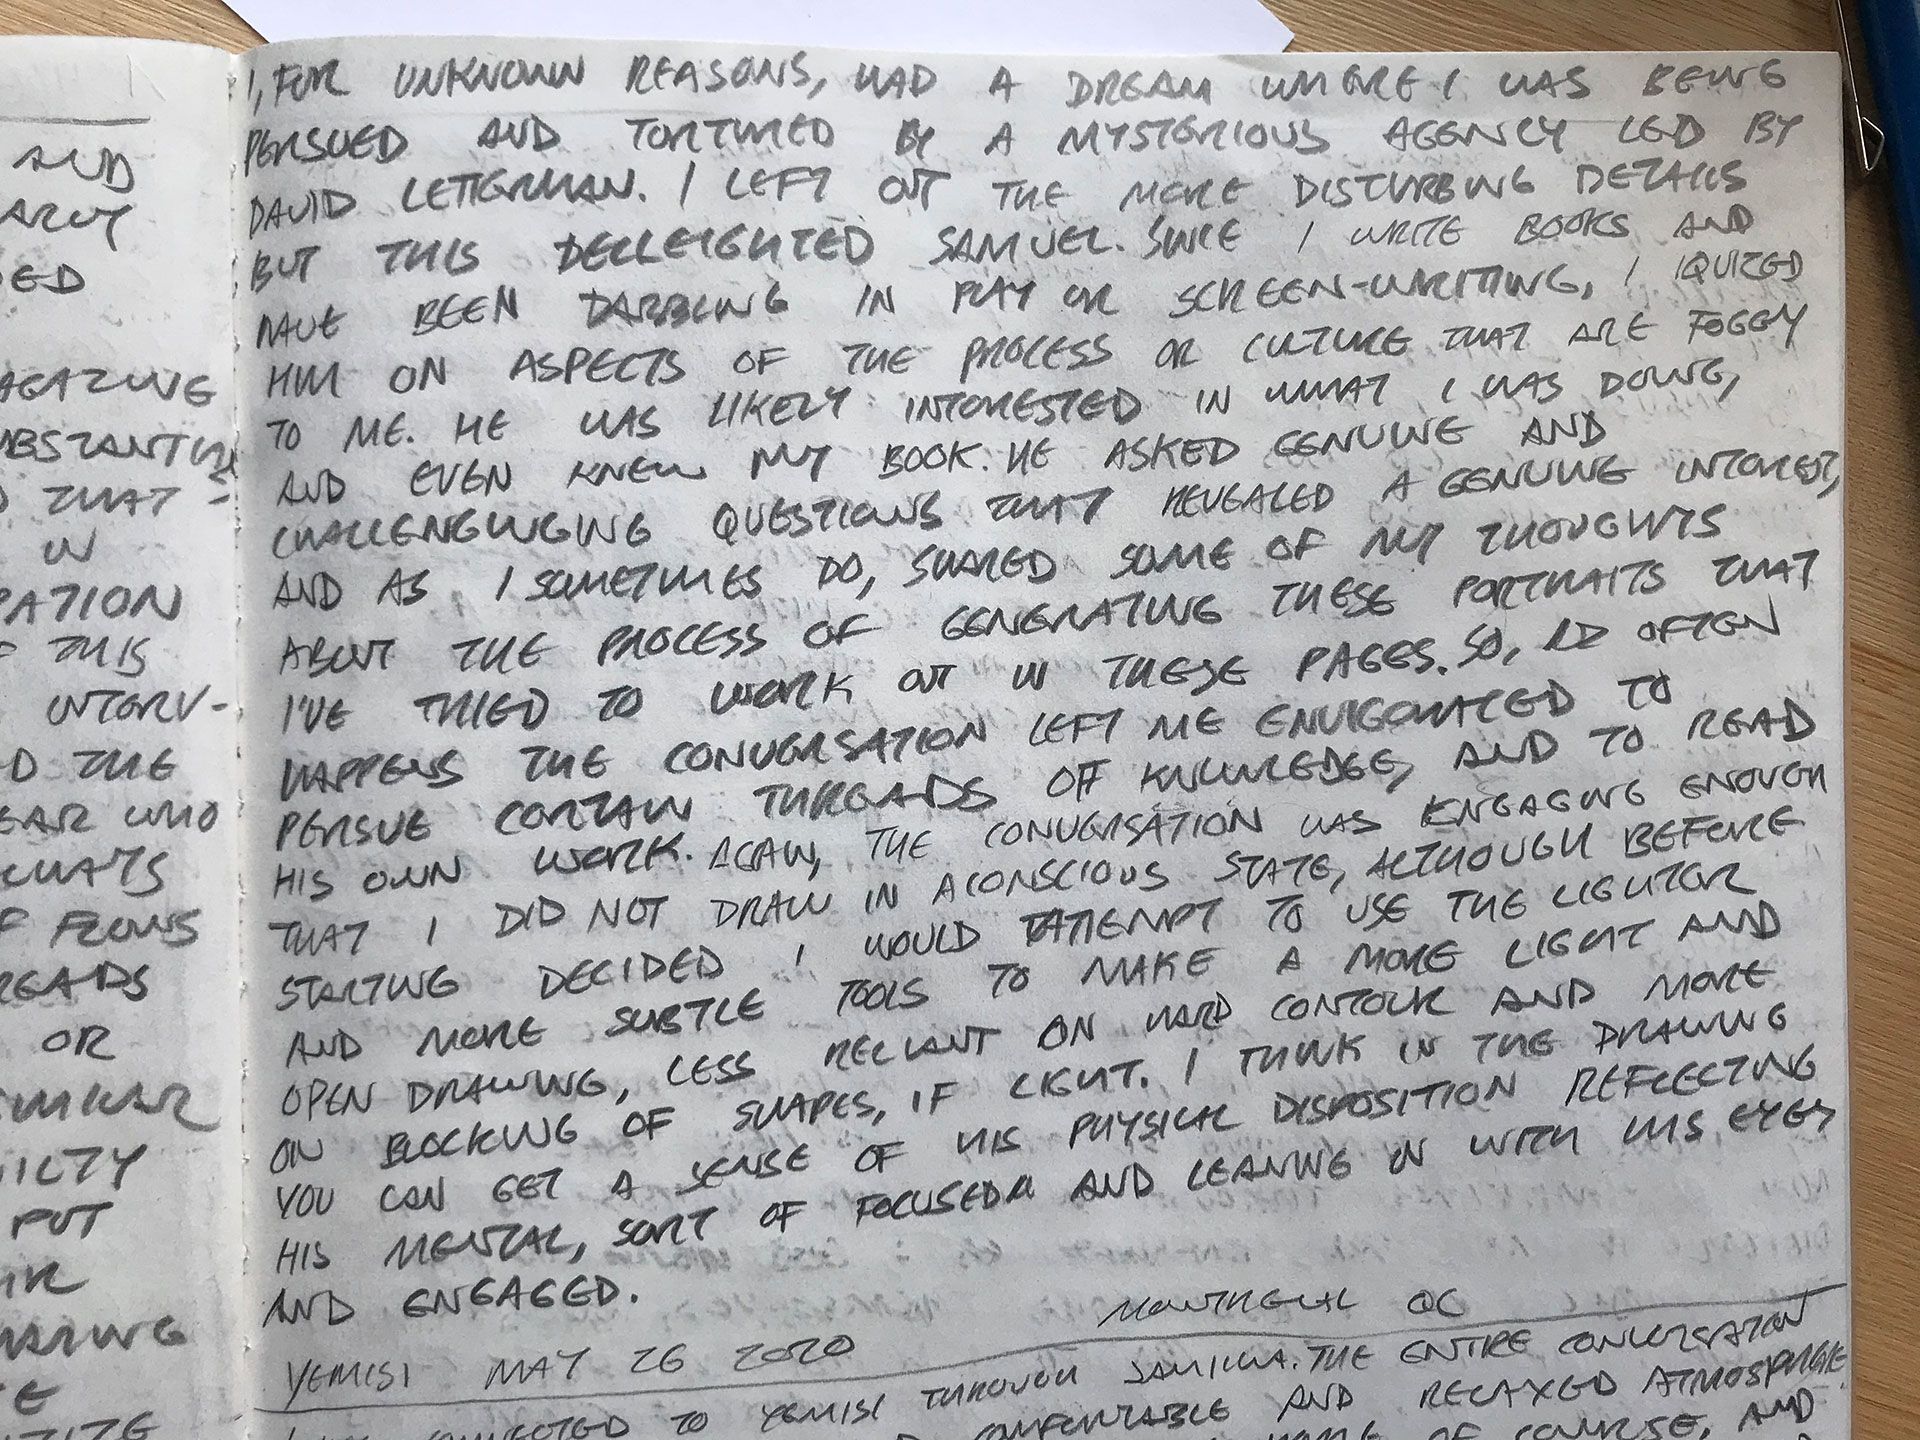 AND
ARLY
ED
AGAZINE
UBSTANTIVE
THAT
IN
PATION
F THIS
INTERV-
D THE
EAR WHO
F FLOWS
READS
OR
IMILAR
ILTY
PUT
E
I, FOR UNKNOWN REASONS, HAD A DREAM WHERE I WAS BEING
PERSUED AND TORTURED BY A MYSTERIOUS AGENCY LED BY
DAVID LETTERMAN. I LEFT OUT THE MORE DISTURBING DETAILS
BUT THIS DELLEIGHTED SAMUEL. SINCE I WRITE BOOKS AND
HAVE BEEN DABBLING IN PLAY OR SCREEN-WRITTING, I IQUIZED
HIM ON ASPECTS OF THE PROCESS OR CULTURE THAT ARE FOGGY
TO ME. HE WAS LIKELY INTERESTED IN WHAT I WAS DOING,
AND EVEN KNEW MY BOOK. HE ASKED GENUINE AND
CHALLENGINGING QUESTIONS THAT REVEALED A GENUINE INTEREST,
AND AS I SOMETIMES DO, SHARED SOME OF MY THOUGHTS
ABOUT THE PROCESS OF GENERATING THESE PORTRAITS THAT
I'VE TRIED TO WORK OUT IN THESE PAGES. SO, AS OFTEN
HAPPENS THE CONVERSATION LEFT ME ENVIGORATED TO
PERSUE CERTAIN THREADS OF KNOWLEDGE, AND TO READ
HIS OWN WORK. AGAIN, THE CONVERSATION WAS ENGAGING ENOUGH
THAT I DID NOT DRAW IN A CONSCIOUS STATE, ALTHOUGH BEFORE
STARTING DECIDED I WOULD ATTEMPT TO USE THE LIGHTER
AND MORE SUBTLE TOOLS TO MAKE A MORE LIGHT AND
OPEN DRAWING, LESS RELIANT ON HARD CONTOUR AND MORE
ON BLOCKING OF SHAPES, IF LIGHT. I THINK IN THE DRAWING
YOU CAN GET A SENSE OF HIS PHYSICAL DISPOSITION REFLECTING
HIS MENTAL, SORT OF FOCUSED AND LEANING IN WITH HIS EYES
AND ENGAGED.
MONTREAL QC
YEMISI MAY 26 2020
CONNECTED TO YEMISI THROUGH JAMILLA. THE ENTIRE CONVERSATION
COMFORTABLE AND RELAXED ATMOSPHERE
OF COURSE, AND